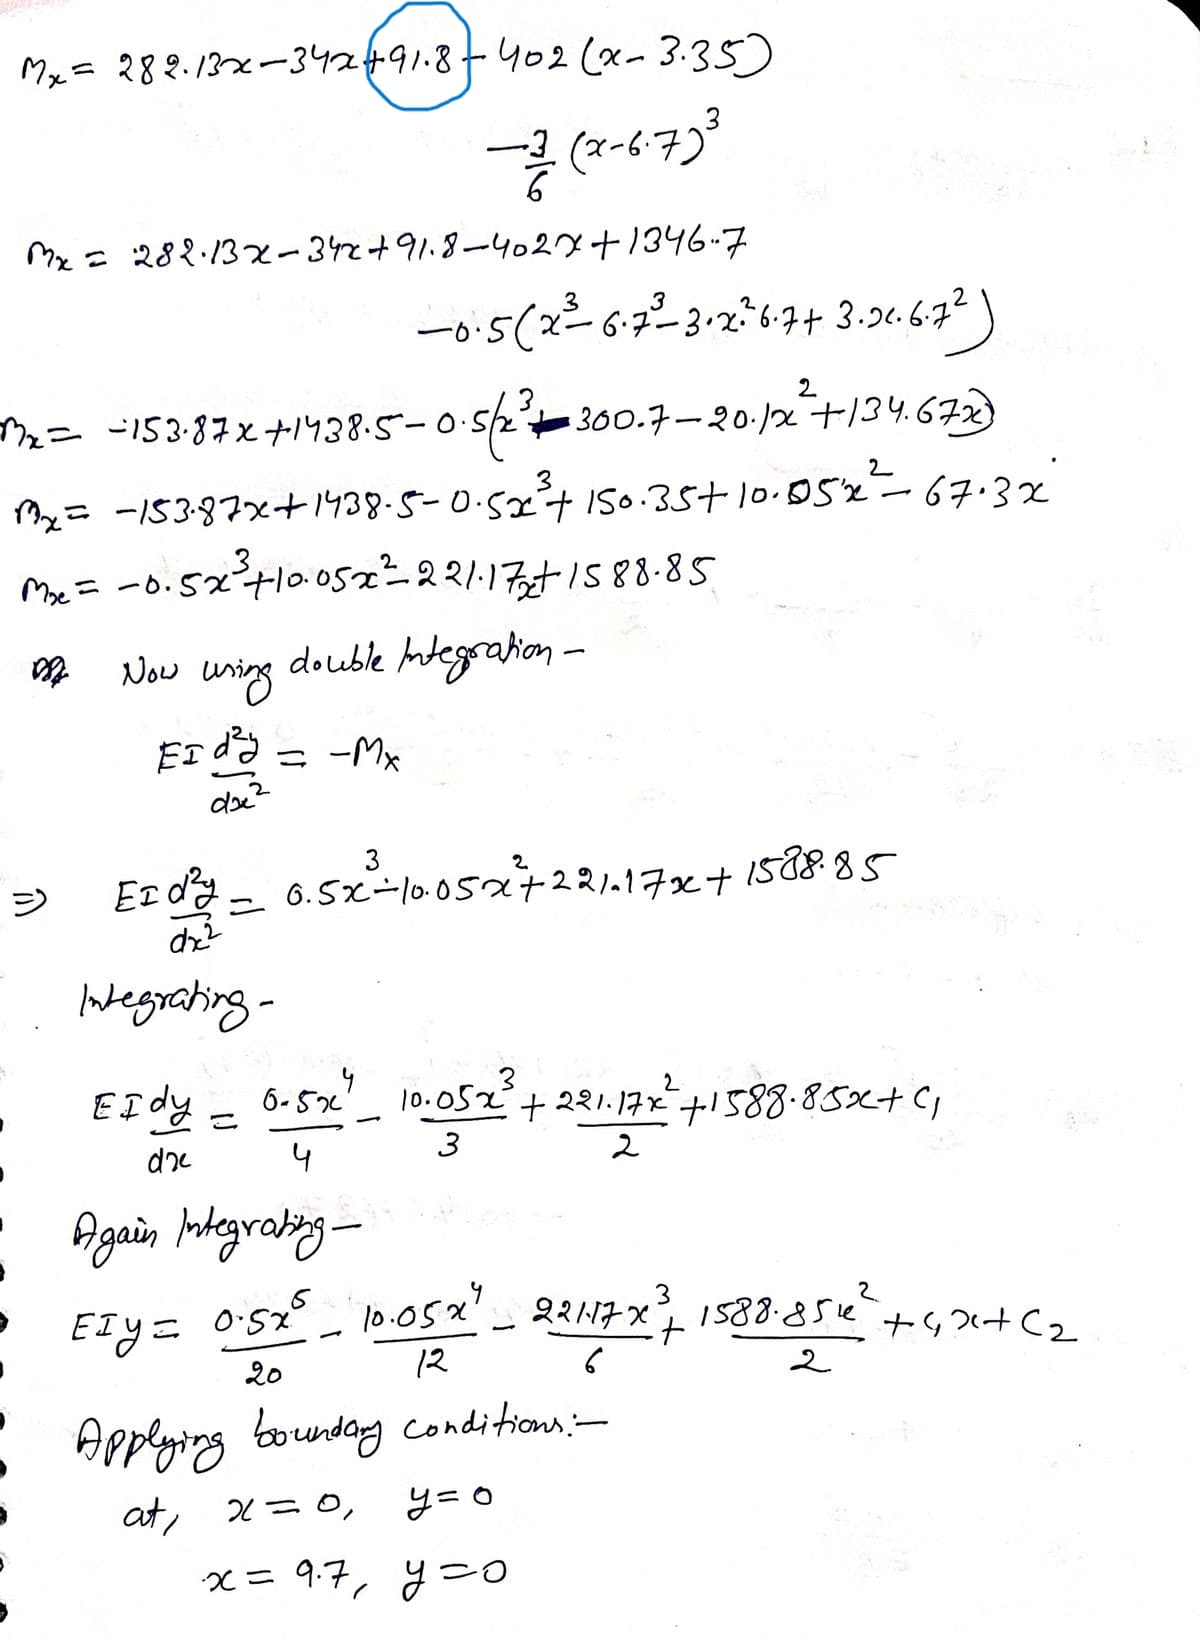 Mx = 282.13x-34x+91.8-402(x-3.35)
-3/6 (x-6.7)³
Mx = 282.13x-34x+91.8-402x+1346.7
-0.5(x³-6.7³-3.x².6.7+3.x.6.7²)
Mx = -153.87x+1438.5-0.5(x³-300.7-20.1x²+134.67x)
Mx = -153.87x+1438.5-0.5x³+150.35+10.05x²-67.3x
Mx = -0.5x³+10.05x²-221.17x+1588.85
Now using double Integration -
EI d²y/dx² = -Mx
⇒ EI d²y/dx² = 0.5x³-10.05x²+221.17x+1588.85
Integrating -
EI dy/dx = 0.5x⁴/4 - 10.05x³/3 + 221.17x²/2 + 1588.85x + C₁
Again Integrating -
EIy = 0.5x⁵/20 - 10.05x⁴/12 - 221.17x³/6 + 1588.85x²/2 + C₁x + C₂
Applying boundary conditions:-
at, x = 0, y = 0
x = 9.7, y = 0